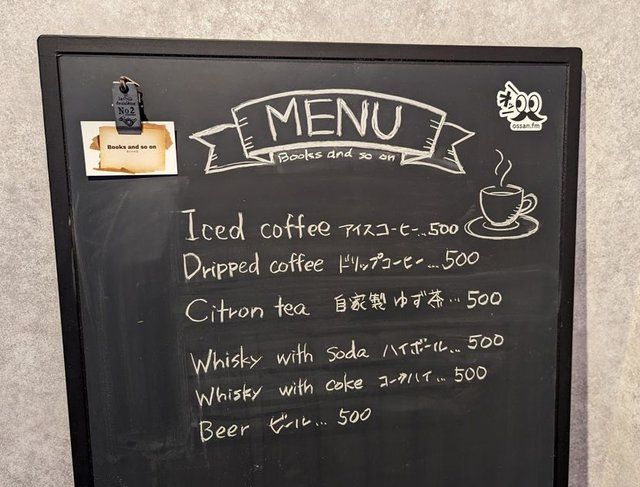 MENU
Books and so on
No.2
Books and so on
ossan.fm
Iced coffee アイスコーヒー...500
Dripped coffee ドリップコーヒー...500
Citron tea 自家製 ゆず茶...500
Whisky with Soda ハイボール...500
Whisky with coke コークハイ...500
Beer ビール...500